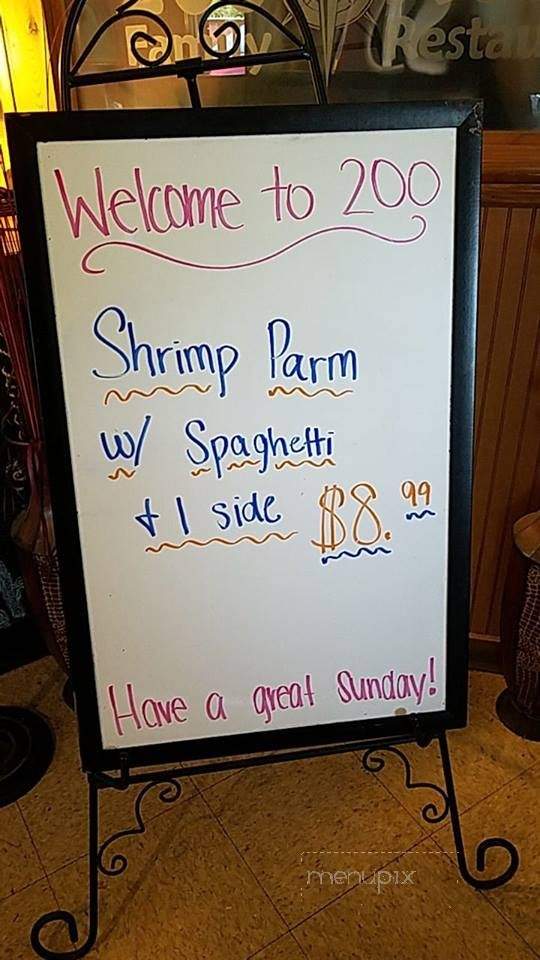 Family Restau
Welcome to 200
Shrimp Parm
w/ Spaghetti
+ 1 side $8.99
Have a great Sunday!
menupix